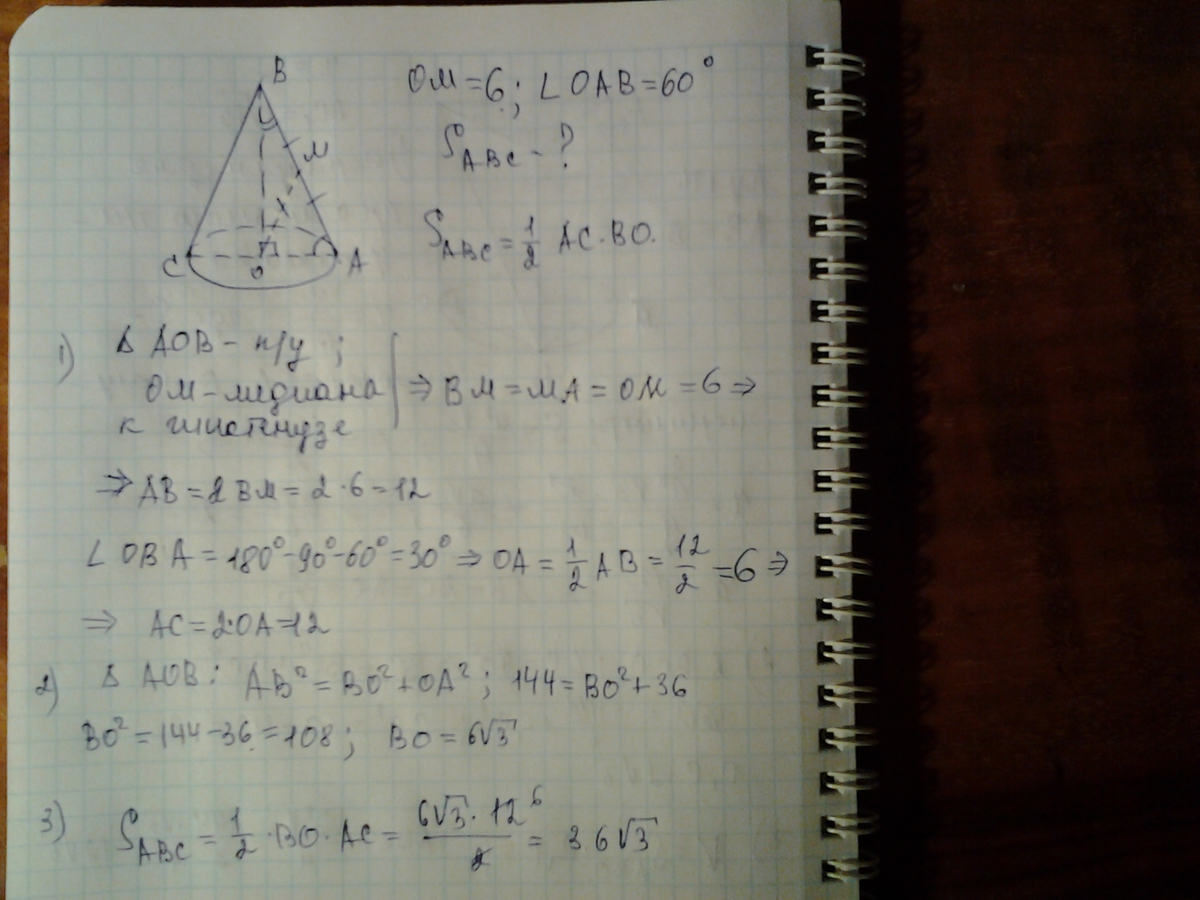 B
M
C
O
A
OM = 6; ∠OAB = 60°
S_ABC - ?
S_ABC = 1/2 AC · BO.
1) Δ AOB - п/у ;
OM - медиана
к гипотенузе
⇒ BM = MA = OM = 6 ⇒
⇒ AB = 2BM = 2 · 6 = 12
∠OBA = 180° - 90° - 60° = 30° ⇒ OA = 1/2 AB = 12/2 = 6 ⇒
⇒ AC = 2·OA = 12
2) Δ AOB: AB² = BO² + OA² ; 144 = BO² + 36
BO² = 144 - 36 = 108 ; BO = 6√3
3) S_ABC = 1/2 · BO · AC = 6√3 · 12 6 / 2 = 36√3